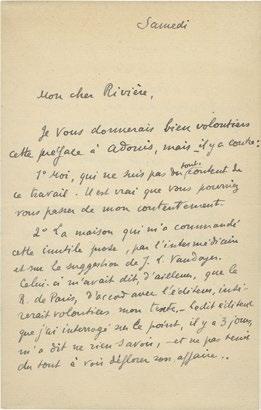 Samedi
Mon cher Rivière,
Je vous donnerais bien volontiers
cette préface à Adonis, mais il y a contre:
1° Moi, qui ne suis pas du tout content de
ce travail. Il est vrai que vous pourriez
vous passer de mon contentement.
2° La maison qui m'a commandé
cette inutile prose, par l'intermédiaire
et sur la suggestion de J. L. Vaudoyer.
Celui-ci m'avait dit, d'ailleurs, que la
R. de Paris, d'accord avec l'éditeur, insé-
rerait volontiers mon texte. – Ledit éditeur
que j'ai interrogé sur le point, il y a 3 jours,
m'a dit ne rien savoir, – et ne pas tenir
du tout à voir déflorer son affaire..